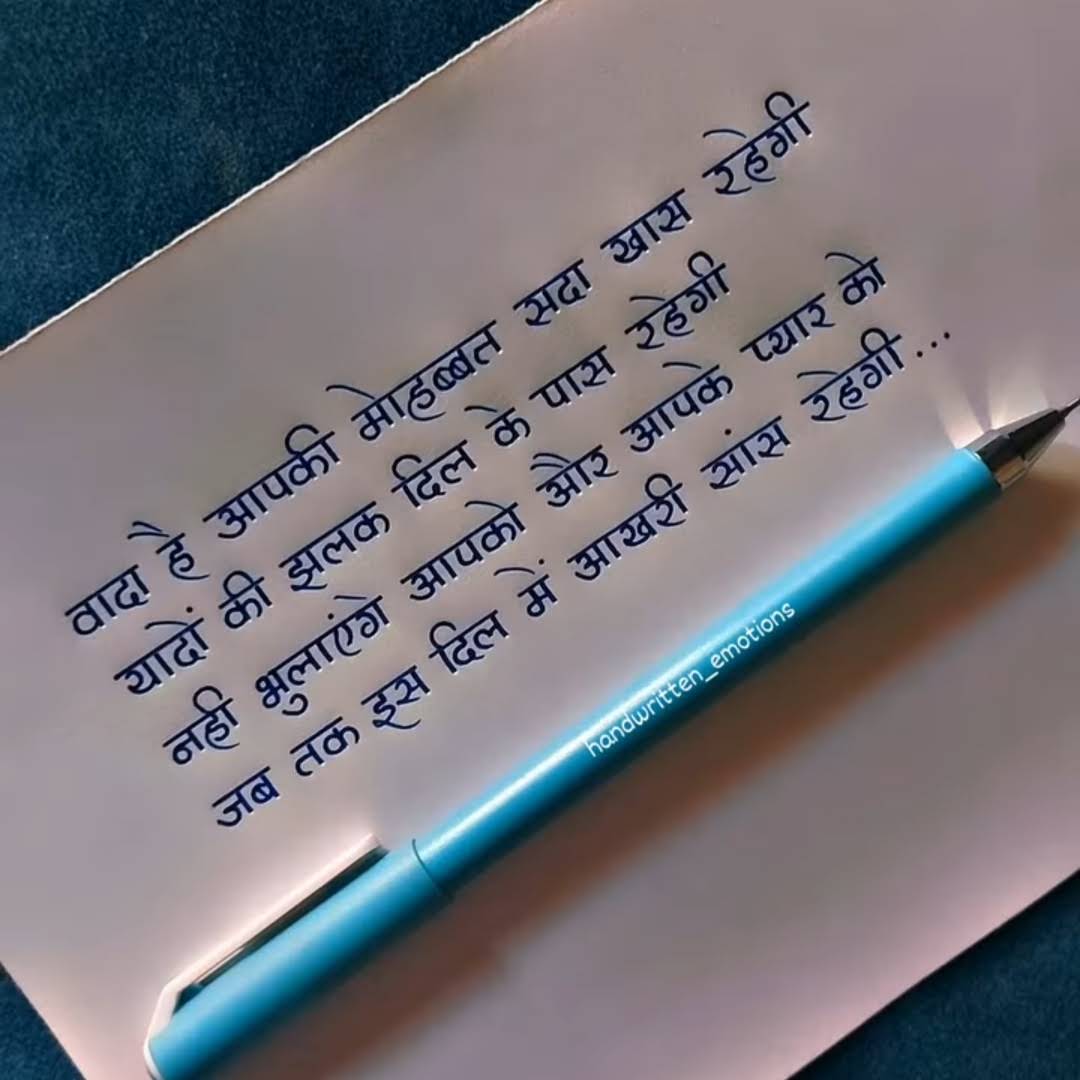 वादा है आपकी मोहब्बत सदा खास रहेगी
यादों की झलक दिल के पास रहेगी
नही भुलाएंगे आपको और आपके प्यार को
जब तक इस दिल में आखरी सांस रहेगी...
handwritten_emotions